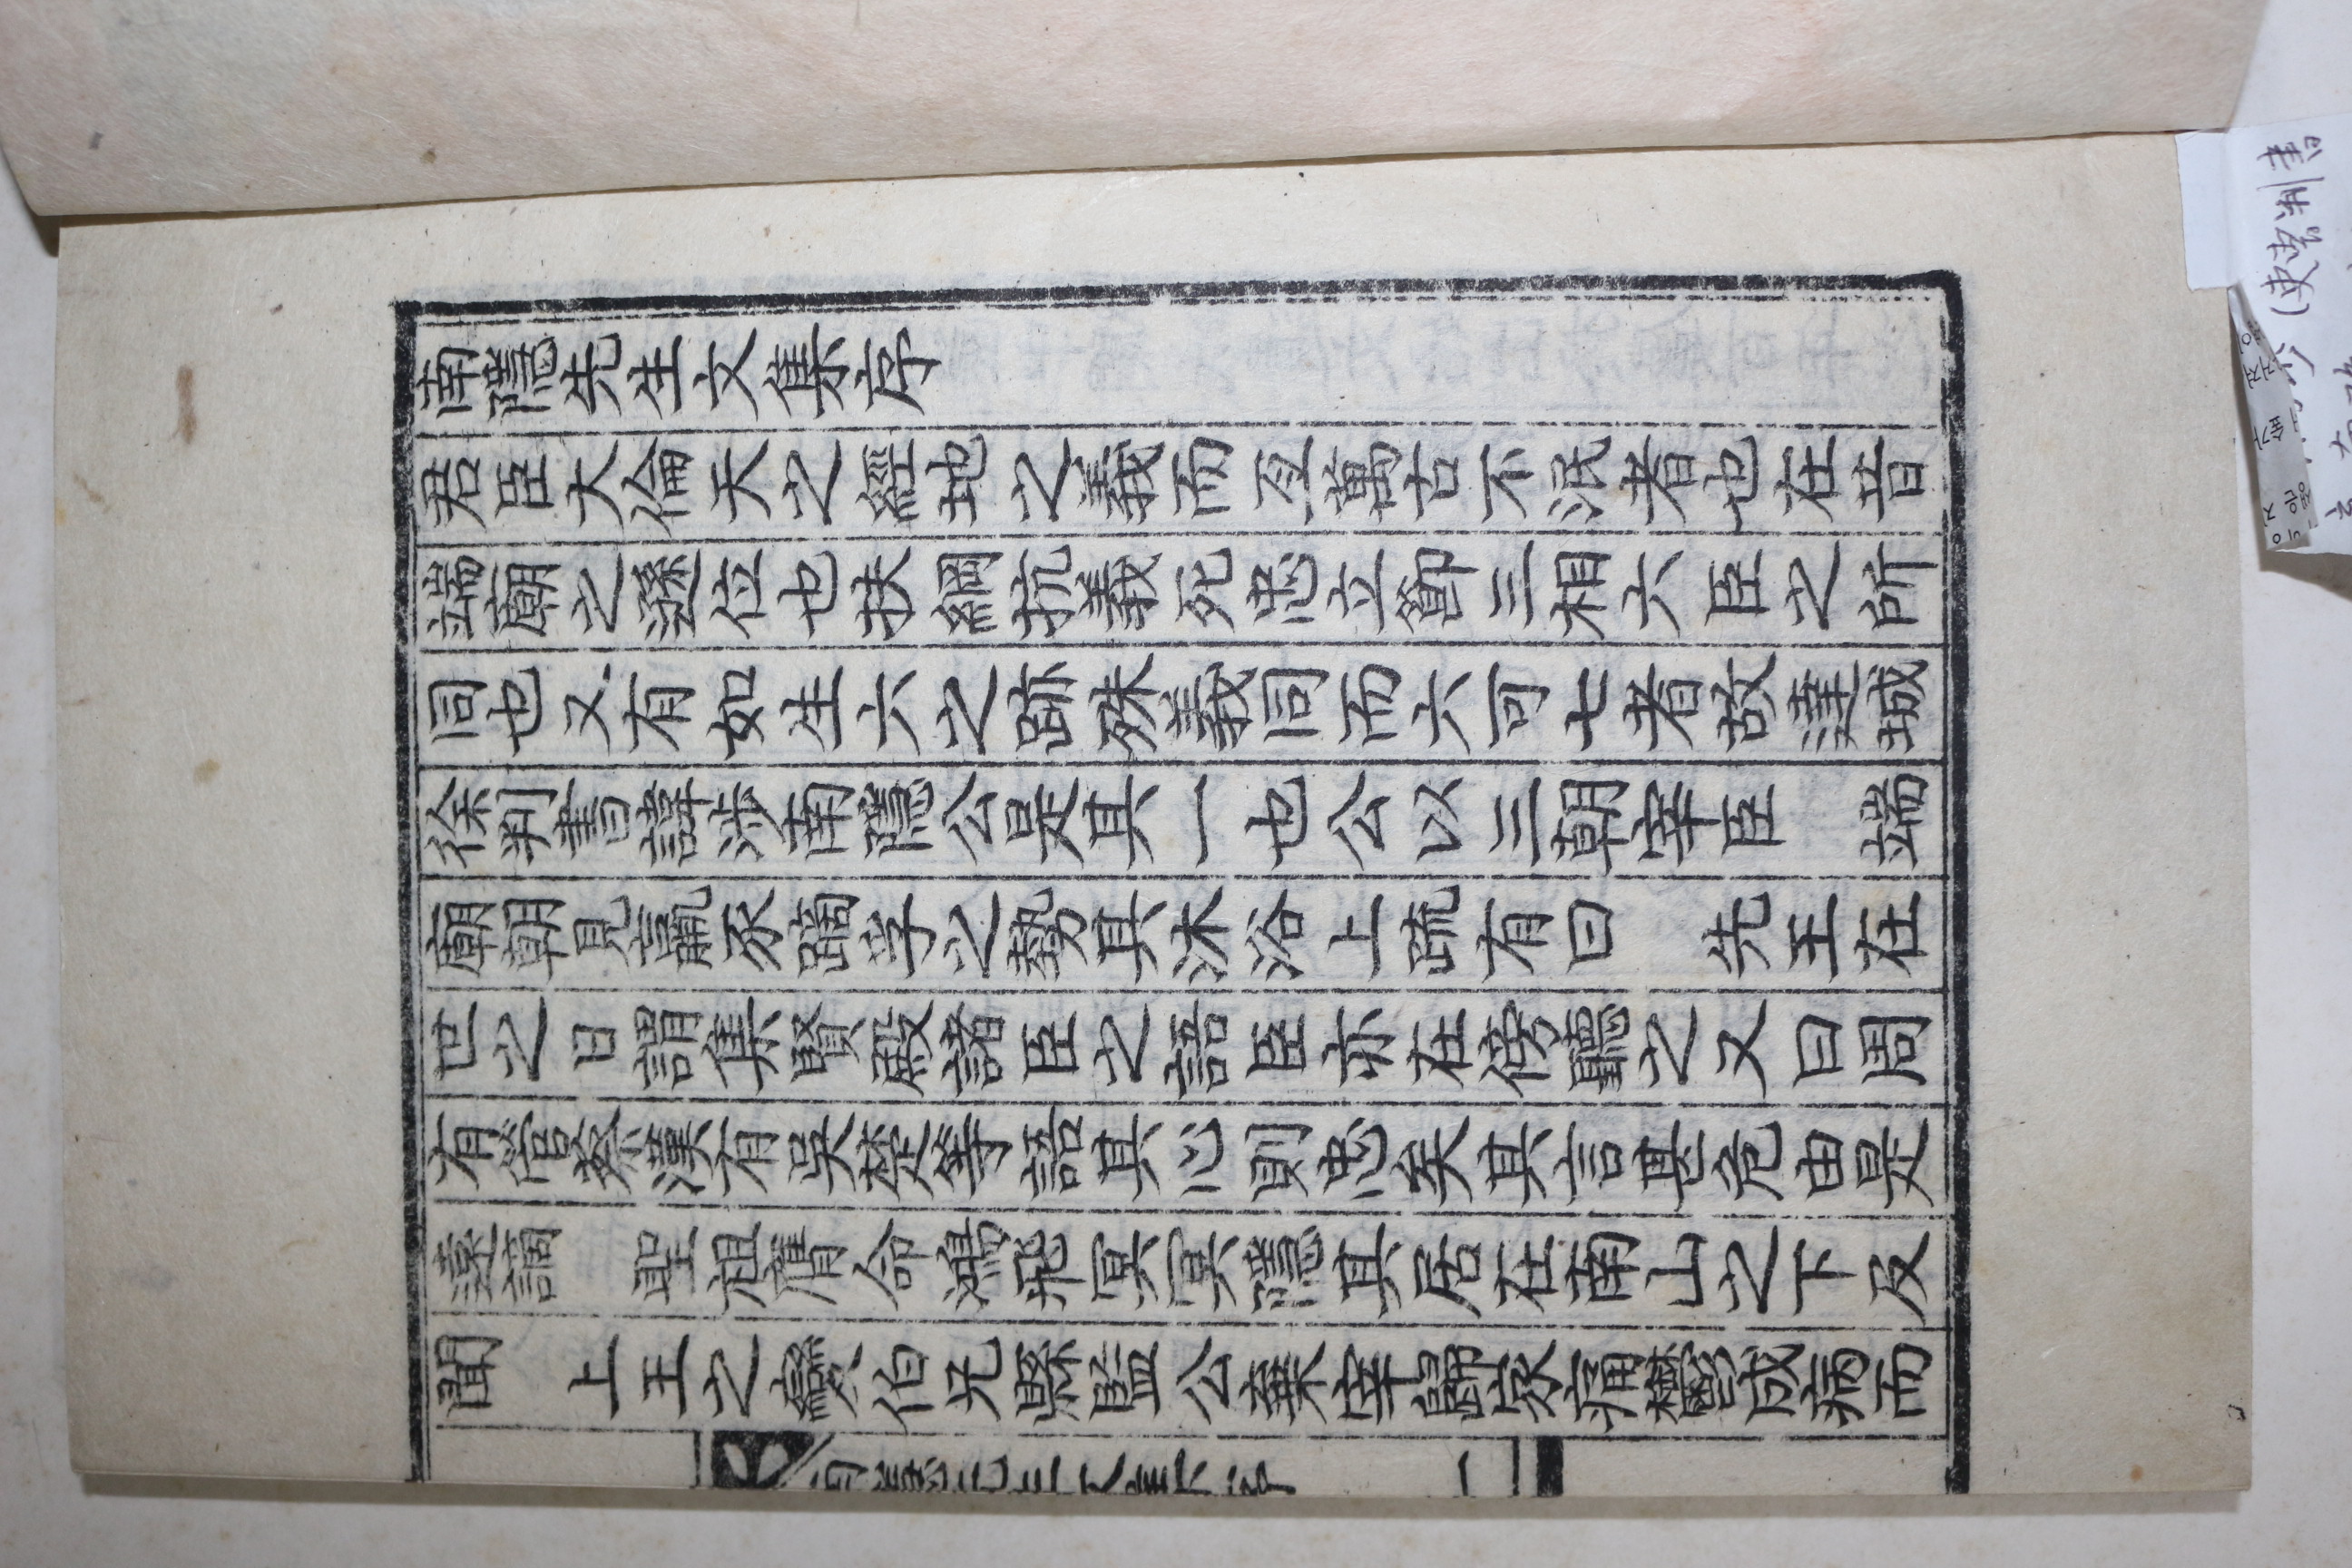 南隱先生文集序
君臣大倫天之經地之義而亙萬古不泯者也在昔
端廟之遜位也扶綱抗義死忠立節三相六臣之所
同也又有如生六之跡殊義同而六可七者故達城
徐判書諱涉南隱公是其一也公以三朝宰臣　端
廟朝見羸豕蹢孚之勢具沐浴上疏有曰　先王在
世之日謂集賢殿諸臣之語臣亦在傍聽之又曰周
有管蔡漢有吳楚等語其心則忠矣其言甚危由是
遠謫　聖祖膺命鴻飛冥冥隱其居在南山之下及
聞　上王之變伯兄縣監公棄宰歸家痛鬱成病而
南隱先生文集序
一
(吏曹判書